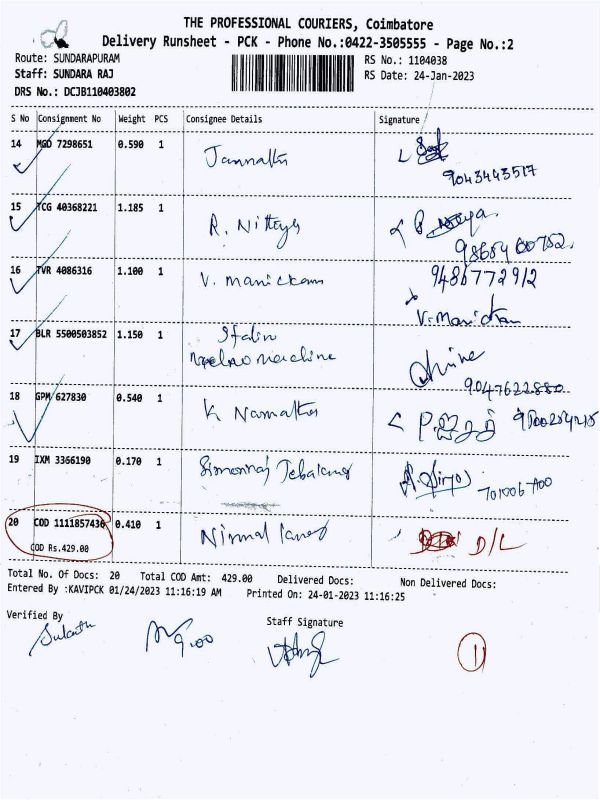 THE PROFESSIONAL COURIERS, Coimbatore
Delivery Runsheet - PCK - Phone No.:0422-3505555 - Page No.:2
Route: SUNDARAPURAM RS No.: 1104038
Staff: SUNDARA RAJ RS Date: 24-Jan-2023
DRS No.: DCJB110403802
S No Consignment No Weight PCS Consignee Details Signature
14 MGD 7298651 0.590 1 Jannathu
9043443517
15 TCG 40368221 1.185 1 R. Nithya
16 TVR 4086316 1.100 1 V. Manickam 9486772912
V. Manickam
17 BLR 5500503852 1.150 1 Stalin
9047622880
18 GPM 627830 0.540 1 K Namathu
19 IXM 3366190 0.170 1
20 COD 1111857436 0.410 1 Nirmal D/L
COD Rs.429.00
Total No. Of Docs: 20 Total COD Amt: 429.00 Delivered Docs: Non Delivered Docs:
Entered By :KAVIPCK 01/24/2023 11:16:19 AM Printed On: 24-01-2023 11:16:25
Verified By Staff Signature
9.00
1